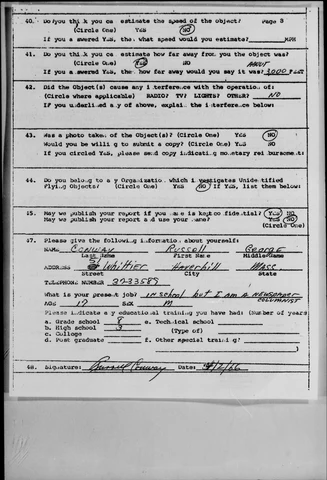 40. Do you think you can estimate the speed of the object? Page 8
(Circle One) YES NO
If you answered YES, then what speed would you estimate? MPH
41. Do you think you can estimate how far away from you the object was?
(Circle One) YES NO ABOUT
If you answered YES, then how far away would you say it was? 3,000 FEET
42. Did the Object(s) cause any interference with the operation of:
(Circle where applicable) RADIO? TV? LIGHTS? OTHER? NO
If you underlined any of above, explain the interference below:
43. Was a photo taken of the Object(s)? (Circle One) YES NO
Would you be willing to submit a copy? (Circle One) YES NO
If you circled YES, please send copy indicating monetary reimbursement:
44. Do you belong to any Organization which investigates Unidentified
Flying Objects? (Circle One) YES NO If YES, list them below:
45. May we publish your report if your name is kept confidential? YES NO
May we publish your report and use your name? YES NO
(Circle One)
47. Please give the following information about yourself:
NAME CONWAY Russell George
Last Name First Name Middle Name
ADDRESS Whittier Haverhill Mass
Street City State
TELEPHONE NUMBER 3733589
What is your present job? IN School but I am A NEWSPAPER
COLUMNIST
AGE 17 SEX M
Please indicate any educational training you have had: (Number of years
a. Grade school 8 e. Technical school
b. High school 3 (Type of)
c. College
d. Post graduate f. Other special training?
48. Signature: Russell Conway Date: